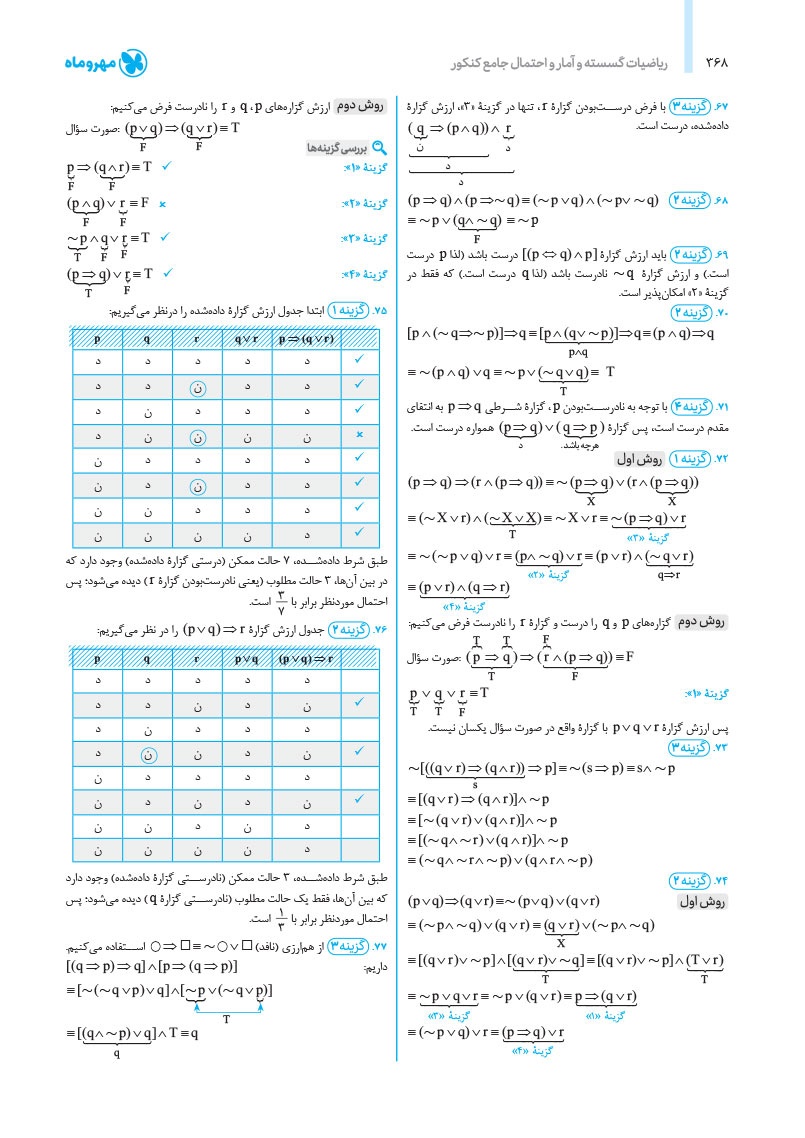 ۳۶۸
ریاضیات گسسته و آمار و احتمال جامع کنکور
مهروماه
۶۷. گزینه ۳ با فرض درست‌بودن گزارهٔ r، تنها در گزینهٔ «۳»، ارزش گزارهٔ
داده‌شده، درست است.
(q ⇒ (p∧q)) ∧ r
ن د
د
د
۶۸. گزینه ۲ (p ⇒ q) ∧ (p ⇒ ~q) ≡ (~p ∨ q) ∧ (~p ∨ ~q)
≡ ~p ∨ (q ∧ ~q) ≡ ~p
F
۶۹. گزینه ۲ باید ارزش گزارهٔ [(p ⇔ q) ∧ p] درست باشد (لذا p درست
است.) و ارزش گزارهٔ ~q نادرست باشد (لذا q درست است.) که فقط در
گزینهٔ «۲» امکان‌پذیر است.
۷۰. گزینه ۲
[p ∧ (~q ⇒ ~p)] ⇒ q ≡ [p ∧ (q ∨ ~p)] ⇒ q ≡ (p ∧ q) ⇒ q
p∧q
≡ ~(p ∧ q) ∨ q ≡ ~p ∨ (~q ∨ q) ≡ T
T
۷۱. گزینه ۴ با توجه به نادرست‌بودن p، گزارهٔ شرطی p ⇒ q به انتفای
مقدم درست است، پس گزارهٔ (p ⇒ q) ∨ (q ⇒ p) همواره درست است.
د هرچه باشد.
۷۲. گزینه ۱ روش اول
(p ⇒ q) ⇒ (r ∧ (p ⇒ q)) ≡ ~(p ⇒ q) ∨ (r ∧ (p ⇒ q))
X X
≡ (~X ∨ r) ∧ (~X ∨ X) ≡ ~X ∨ r ≡ ~(p ⇒ q) ∨ r
T گزینهٔ «۳»
≡ ~(~p ∨ q) ∨ r ≡ (p ∧ ~q) ∨ r ≡ (p ∨ r) ∧ (~q ∨ r)
گزینهٔ «۲» q⇒r
≡ (p ∨ r) ∧ (q ⇒ r)
گزینهٔ «۴»
روش دوم گزاره‌های p و q را درست و گزارهٔ r را نادرست فرض می‌کنیم:
T T F
صورت سؤال: (p ⇒ q) ⇒ (r ∧ (p ⇒ q)) ≡ F
T F
گزینهٔ «۱»: p ∨ q ∨ r ≡ T
T T F
پس ارزش گزارهٔ p ∨ q ∨ r با گزارهٔ واقع در صورت سؤال یکسان نیست.
۷۳. گزینه ۳
~[((q ∨ r) ⇒ (q ∧ r)) ⇒ p] ≡ ~(s ⇒ p) ≡ s ∧ ~p
s
≡ [(q ∨ r) ⇒ (q ∧ r)] ∧ ~p
≡ [~(q ∨ r) ∨ (q ∧ r)] ∧ ~p
≡ [(~q ∧ ~r) ∨ (q ∧ r)] ∧ ~p
≡ (~q ∧ ~r ∧ ~p) ∨ (q ∧ r ∧ ~p)
۷۴. گزینه ۲
روش اول
(p ∨ q) ⇒ (q ∨ r) ≡ ~(p ∨ q) ∨ (q ∨ r)
≡ (~p ∧ ~q) ∨ (q ∨ r) ≡ (q ∨ r) ∨ (~p ∧ ~q)
X
≡ [(q ∨ r) ∨ ~p] ∧ [(q ∨ r) ∨ ~q] ≡ [(q ∨ r) ∨ ~p] ∧ (T ∨ r)
T T
≡ ~p ∨ q ∨ r ≡ ~p ∨ (q ∨ r) ≡ p ⇒ (q ∨ r)
گزینهٔ «۳» گزینهٔ «۱»
≡ (~p ∨ q) ∨ r ≡ (p ⇒ q) ∨ r
گزینهٔ «۴»
روش دوم ارزش گزاره‌های p، q و r را نادرست فرض می‌کنیم:
صورت سؤال: (p ∨ q) ⇒ (q ∨ r) ≡ T
F F
بررسی گزینه‌ها
گزینهٔ «۱»: p ⇒ (q ∧ r) ≡ T ✓
F F
گزینهٔ «۲»: (p ∧ q) ∨ r ≡ F ×
F F
گزینهٔ «۳»: ~p ∧ q ∨ r ≡ T ✓
T F F
گزینهٔ «۴»: (p ⇒ q) ∨ r ≡ T ✓
T F
۷۵. گزینه ۱ ابتدا جدول ارزش گزارهٔ داده‌شده را درنظر می‌گیریم:
p q r q∨r p⇒(q∨r)
د د د د د ✓
د د ن د د ✓
د ن د د د ✓
د ن ن ن ن ×
ن د د د د ✓
ن د ن د د ✓
ن ن د د د ✓
ن ن ن ن د ✓
طبق شرط داده‌شده، ۷ حالت ممکن (درستی گزارهٔ داده‌شده) وجود دارد که
در بین آن‌ها، ۳ حالت مطلوب (یعنی نادرست‌بودن گزارهٔ r) دیده می‌شود؛ پس
احتمال موردنظر برابر با ۳/۷ است.
۷۶. گزینه ۲ جدول ارزش گزارهٔ (p ∨ q) ⇒ r را در نظر می‌گیریم:
p q r p∨q (p∨q)⇒r
د د د د د
د د ن د ن ✓
د ن د د د
د ن ن د ن ✓
ن د د د د
ن د ن د ن ✓
ن ن د ن د
ن ن ن ن د
طبق شرط داده‌شده، ۳ حالت ممکن (نادرستی گزارهٔ داده‌شده) وجود دارد
که بین آن‌ها، فقط یک حالت مطلوب (نادرستی گزارهٔ q) دیده می‌شود؛ پس
احتمال موردنظر برابر با ۱/۳ است.
۷۷. گزینه ۳ از هم‌ارزی (نافذ) ○ ⇒ □ ≡ ~○ ∨ □ استفاده می‌کنیم.
داریم: [(q ⇒ p) ⇒ q] ∧ [p ⇒ (q ⇒ p)]
≡ [~(~q ∨ p) ∨ q] ∧ [~p ∨ (~q ∨ p)]
T
≡ [(q ∧ ~p) ∨ q] ∧ T ≡ q
q